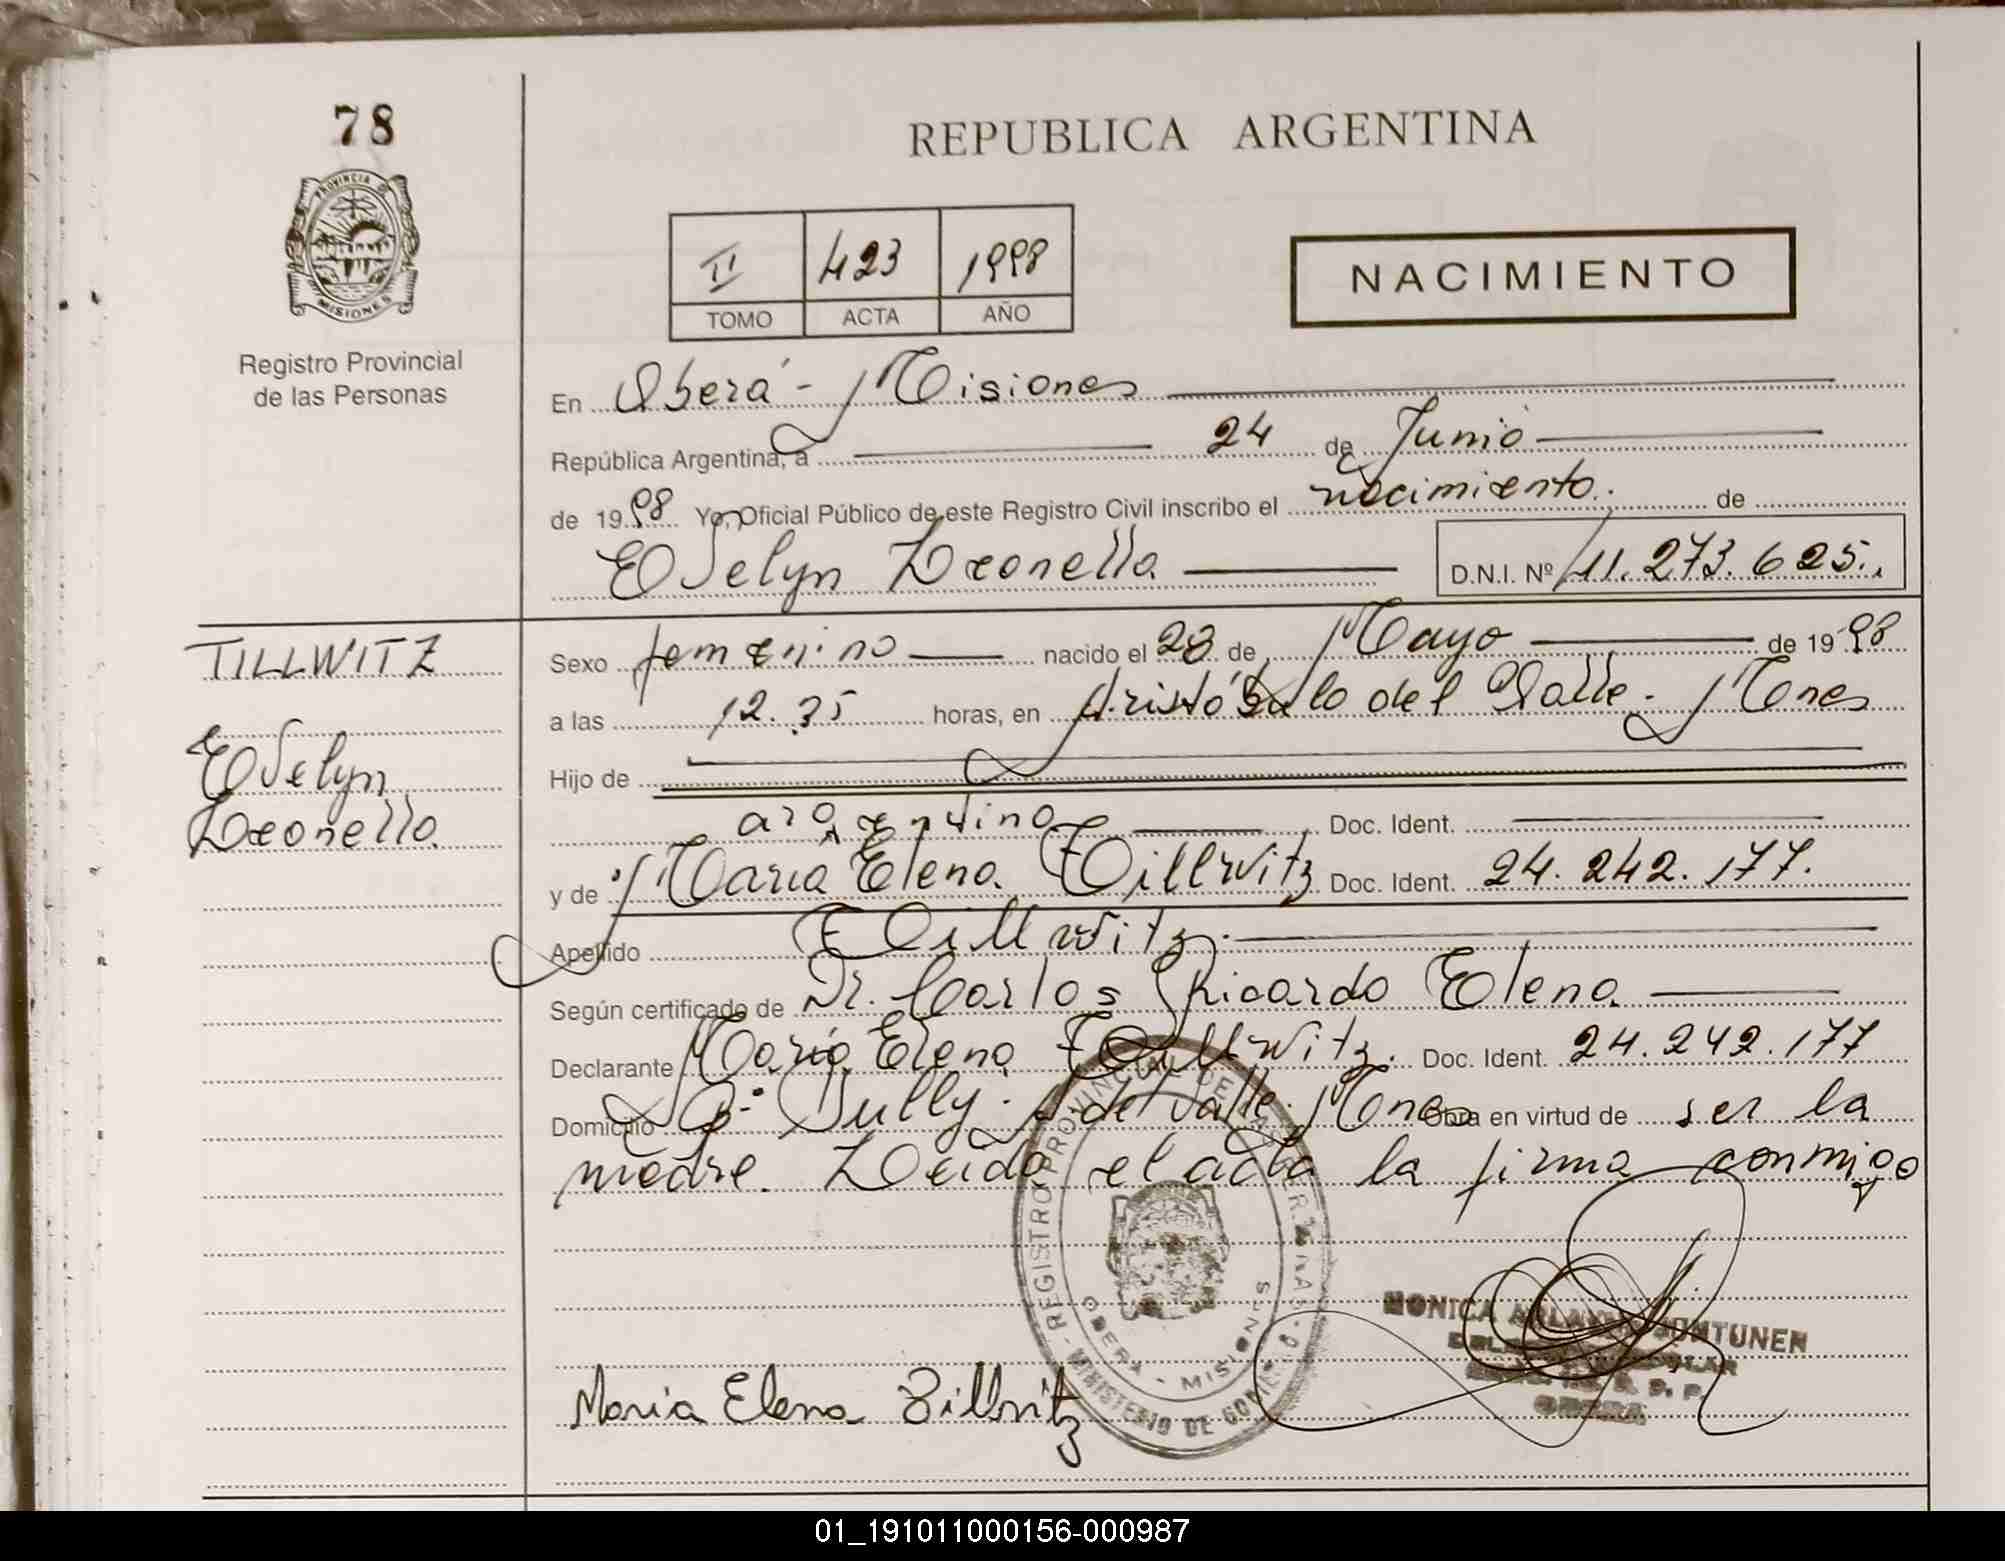 78
REPUBLICA ARGENTINA
PROVINCIA DE
MISIONES
Registro Provincial
de las Personas
II 423 1998
TOMO ACTA AÑO
NACIMIENTO
En Oberá - Misiones
República Argentina, a 24 de Junio
de 1998 Yo, Oficial Público de este Registro Civil inscribo el nacimiento. de
Evelyn Leonella D.N.I. Nº 41.273.625.
TILLWITZ
Evelyn
Leonella
Sexo femenino nacido el 28 de Mayo de 1998
a las 12.35 horas, en Aristóbulo del Valle - Mones
Hijo de
argentina Doc. Ident.
y de María Elena Tillwitz Doc. Ident. 24.242.177.
Apellido Tillwitz.
Según certificado de Dr. Carlos Ricardo Elena
Declarante María Elena Tillwitz. Doc. Ident. 24.242.177
Domicilio Bº Tully. A. del Valle. Mones Obra en virtud de ser la
madre. Leída el acta la firma conmigo
REGISTRO PROVINCIAL DE LAS PERSONAS
OBERA - MISIONES
MINISTERIO DE GOBIERNO
MONICA
OBERA
Maria Elena Tillwitz
01_191011000156-000987